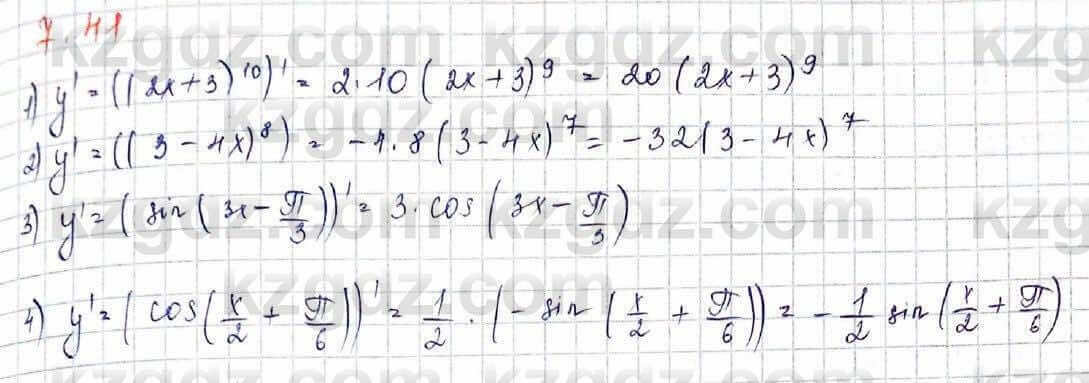 7.41
1) y' = ((2x+3)^10)' = 2·10(2x+3)^9 = 20(2x+3)^9
2) y' = ((3-4x)^8) = -4·8(3-4x)^7 = -32(3-4x)^7
3) y' = (sin(3x-π/3))' = 3·cos(3x-π/3)
4) y' = (cos(x/2+π/6))' = 1/2·(-sin(x/2+π/6)) = -1/2 sin(x/2+π/6)
kzgdz.com